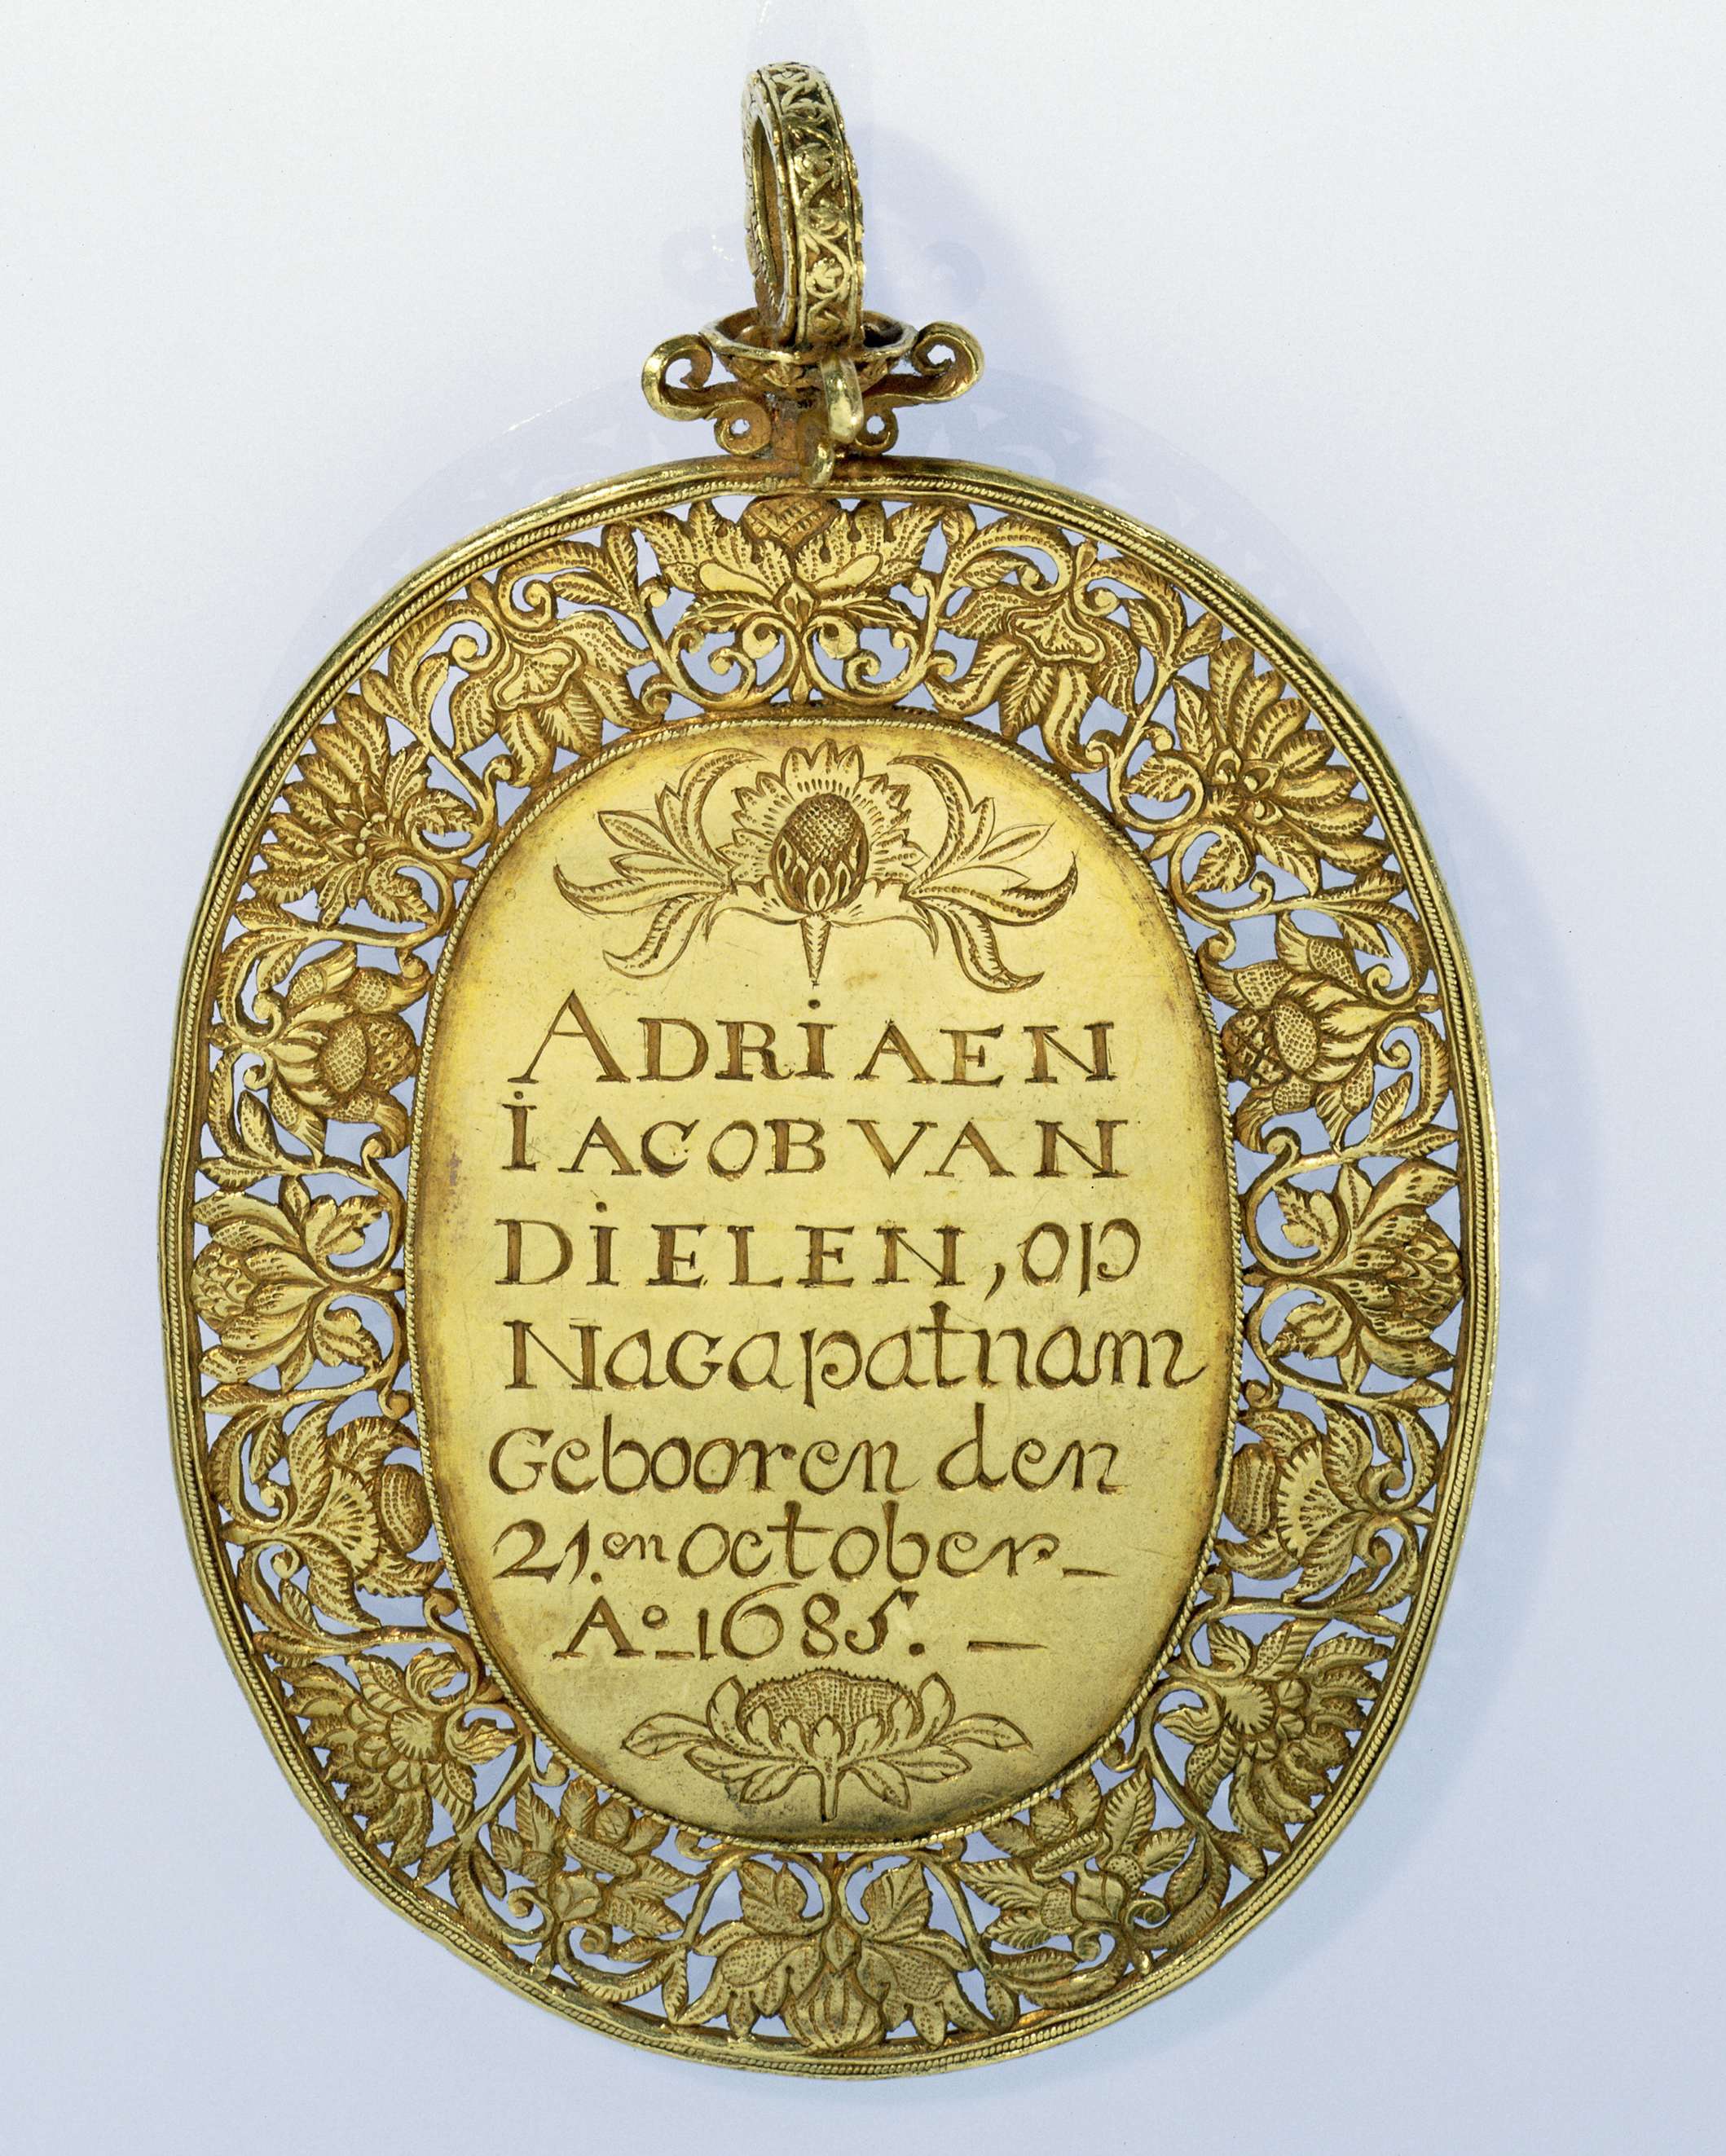 ADRiAEN
iACOB VAN
DiELEN, op
Nagapatnam
Gebooren den
21.en october_
Ao_1685. _